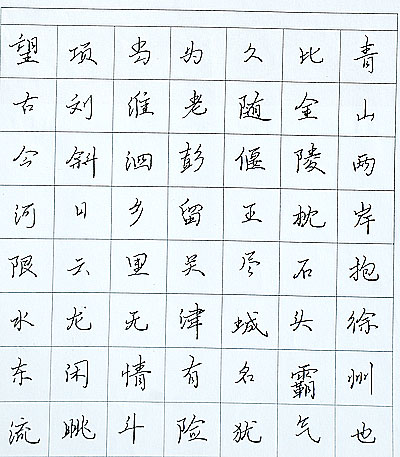 青山两岸抱徐州也
比金陵枕石头霸气
久随偃王尽城名犹
为老彭留吴津有险
当维泗乡里无情斗
项刘斜日云龙闲眺
望古今河限水东流